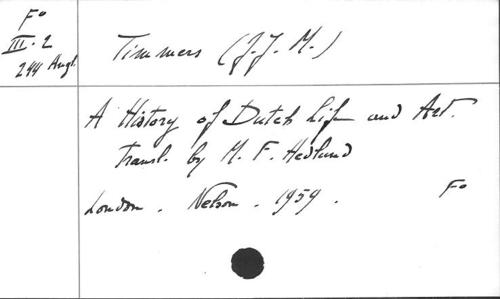 Fo
III. 2
244 Angl.
Timmers (J.J. M.)
A History of Dutch Life and Art.
Transl. by M. F. Hedlund
London. Nelson. 1959.
Fo